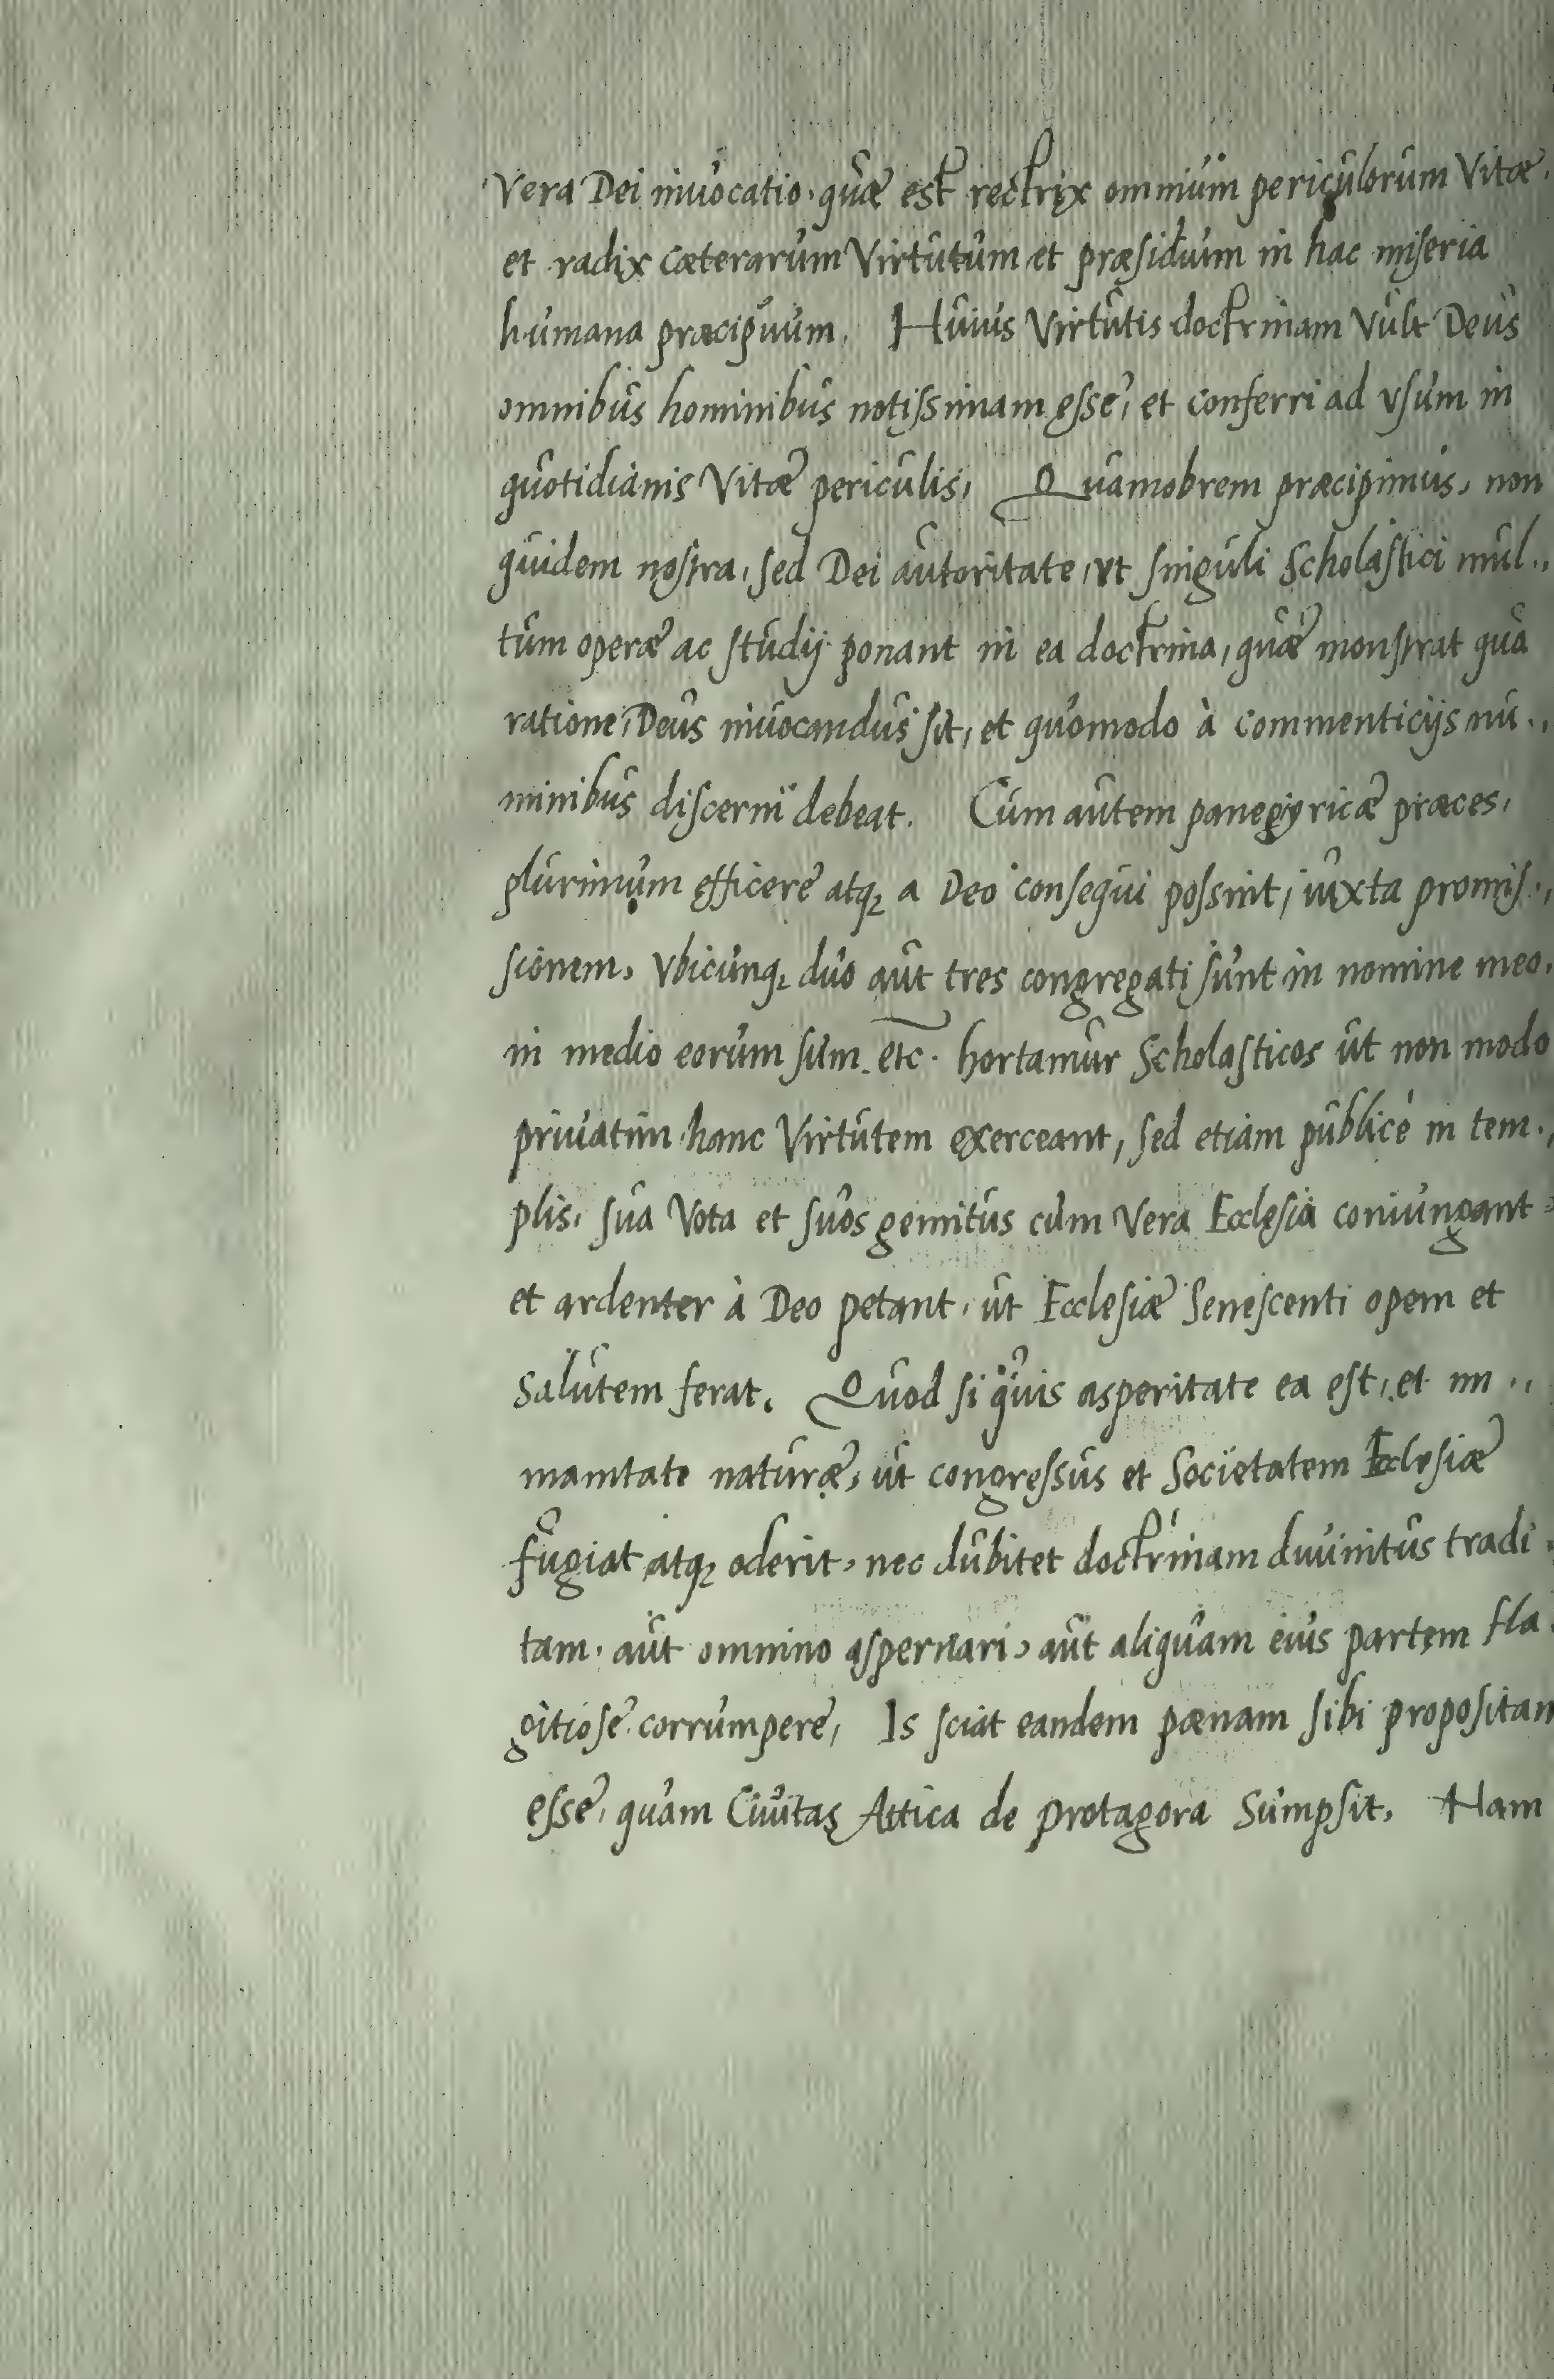 Vera Dei inuocatio. quæ est rectrix omnium periculorum Vitæ.
et radix cæterarum Virtutum et præsidium in hac miseria
humana præcipuum. Huius Virtutis doctrinam Vult Deus
omnibus hominibus notissimam esse, et conferri ad vsum in
quotidianis Vitæ periculis, Quamobrem præcipimus, non
quidem nostra, sed Dei autoritate, vt singuli Scholastici mul..
tum operæ ac studij ponant in ea doctrina, quæ monstrat qua
ratione, Deus inuocandus sit, et quomodo à commenticijs nu..
minibus discerni debeat. Cum autem panegyricæ præces,
plurimum efficere atq; a Deo consequi possint, iuxta promis..
sionem, Vbicunq; duo aut tres congregati sunt in nomine meo.
in medio eorum sum. etc. hortamur Scholasticos ut non modo
priuatim hanc Virtutem exerceant, sed etiam publicè in tem..
plis, sua Vota et suos gemitus cum Vera Ecclesia coniungant
et ardenter à Deo petant, ut Ecclesiæ Senescenti opem et
salutem ferat. Quod si quis asperitate ea est, et im..
manitate naturæ, ut congressus et Societatem Ecclesiæ
fugiat atq; oderit, nec dubitet doctrinam diuinitus tradi.
tam. aut omnino aspernari, aut aliquam eius partem fla.
gitiose corrumpere, Is sciat eandem pænam sibi propositam
esse, quam Ciuitas Attica de protagora Sumpsit. Nam